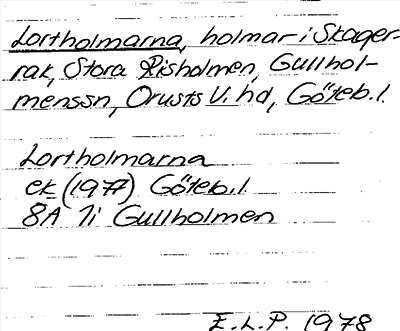 Lortholmarna, holmar i Skager-
rak, Stora Risholmen, Gullhol-
menssn, Orusts V. hd, Göteb.l.
Lortholmarna
ek (1977) Göteb.l.
8A 7i Gullholmen
E.L.P. 1978